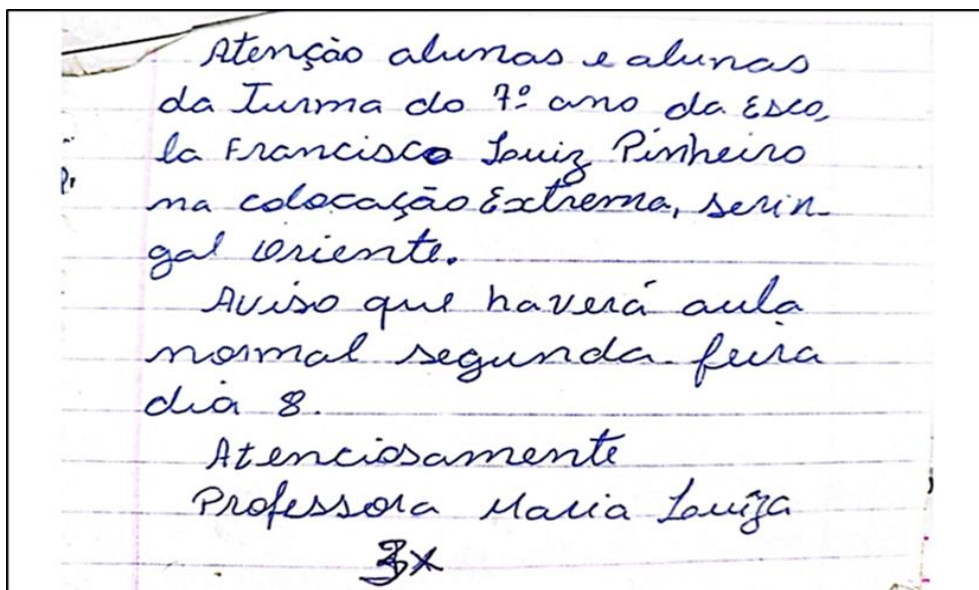 Atenção alunos e alunas
da Turma do 7º ano da Esco,
la Francisco Louiz Pinheiro
na colocação Extrema, serin-
gal oriente.
Aviso que haverá aula
normal segunda-feira
dia 8.
Atenciosamente
Professora Maria Louíza
3x